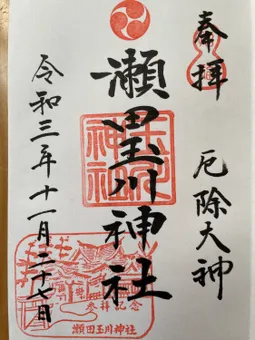 奉拝
厄除大神
瀬田玉川神社
令和三年十一月二十七日
参拝記念
瀬田玉川神社